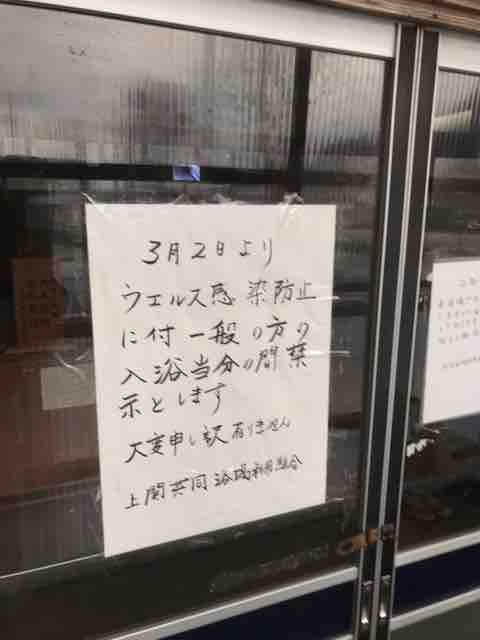 3月2日より
ウエルス感染防止
に付一般の方の
入浴当分の間禁
示とします
大変申し訳有りません
上関共同浴場利用組合